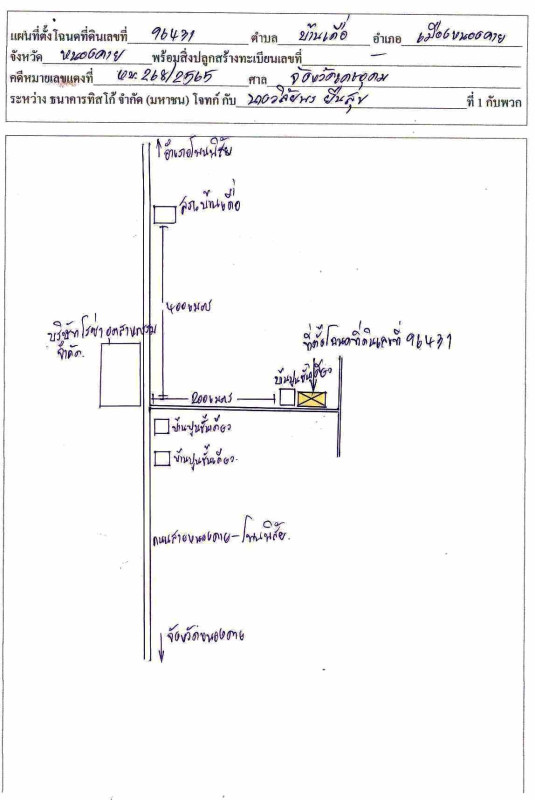 แผนที่ตั้งโฉนดที่ดินเลขที่ 96431 ตำบล บ้านเดื่อ อำเภอ เมืองหนองคาย
จังหวัด หนองคาย พร้อมสิ่งปลูกสร้างทะเบียนเลขที่ —
คดีหมายเลขแดงที่ ผบ. 268/2565 ศาล จังหวัดเดชอุดม
ระหว่าง ธนาคารทิสโก้ จำกัด (มหาชน) โจทก์ กับ นางวิลัยพร ยืนสุข ที่ 1 กับพวก
อำเภอโพนพิสัย
บ้านเดื่อ
400เมตร
บริษัทโรซ่าอุตสาหกรรม
จำกัด.
ที่ตั้งโฉนดที่ดินเลขที่ 96431
บ้านปูนชั้นเดียว
200เมตร
บ้านปูนชั้นเดียว
บ้านปูนชั้นเดียว.
ถนนสายหนองคาย-โพนพิสัย.
จังหวัดหนองคาย